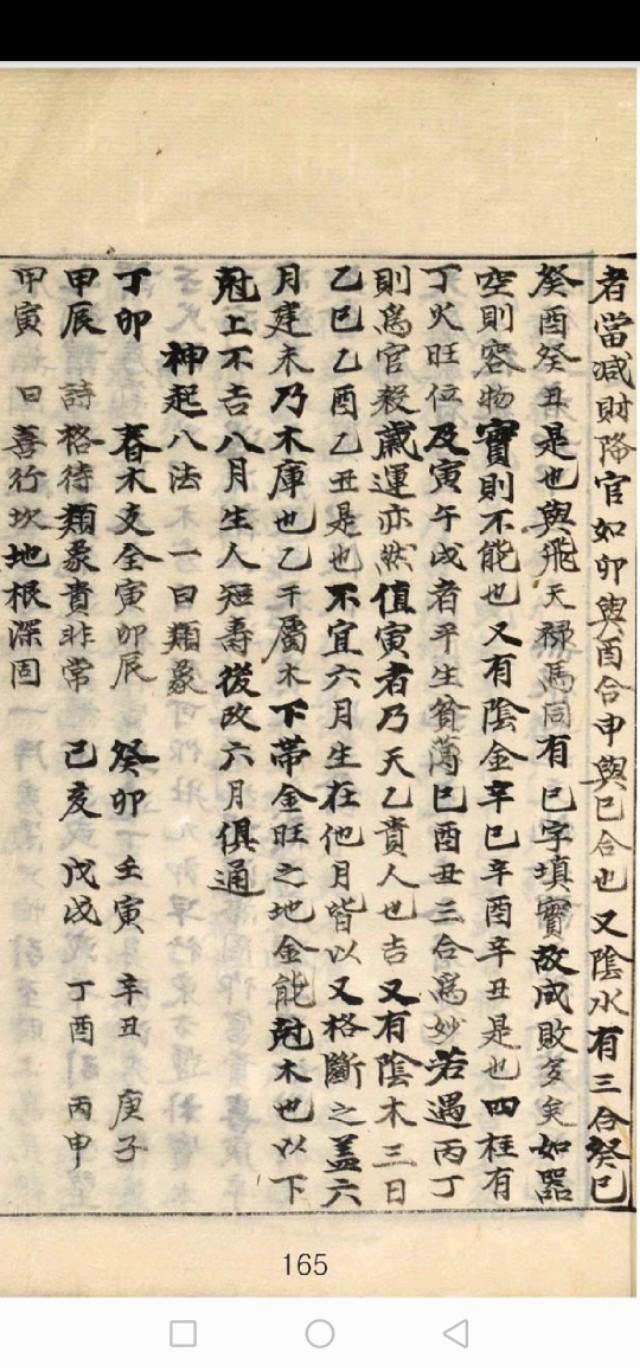 者當减財降官如卯與酉合申與巳合也又陰水有三合癸巳
癸酉癸丑是也與飛天祿馬同有巳字填實故成敗多矣如器
空則容物實則不能也又有陰金辛巳辛酉辛丑是也四柱有
丁火旺位及寅午戌者平生貧薄巳酉丑三合爲妙若遇丙丁
則爲官殺歲運亦然值寅者乃天乙貴人也吉又有陰木三日
乙巳乙酉乙丑是也不宜六月生在他月皆以又格斷之盖六
月建未乃木庫也乙干屬木下帶金旺之地金能尅木也以下
尅上不吉八月生人短壽後改六月俱通
神起八法 一曰類象
丁卯 春木支全寅卯辰 癸卯 壬寅 辛丑 庚子
甲辰 詩 格待類象貴非常 己亥 戊戌 丁酉 丙申
甲寅 曰 善行坎地根深固
165